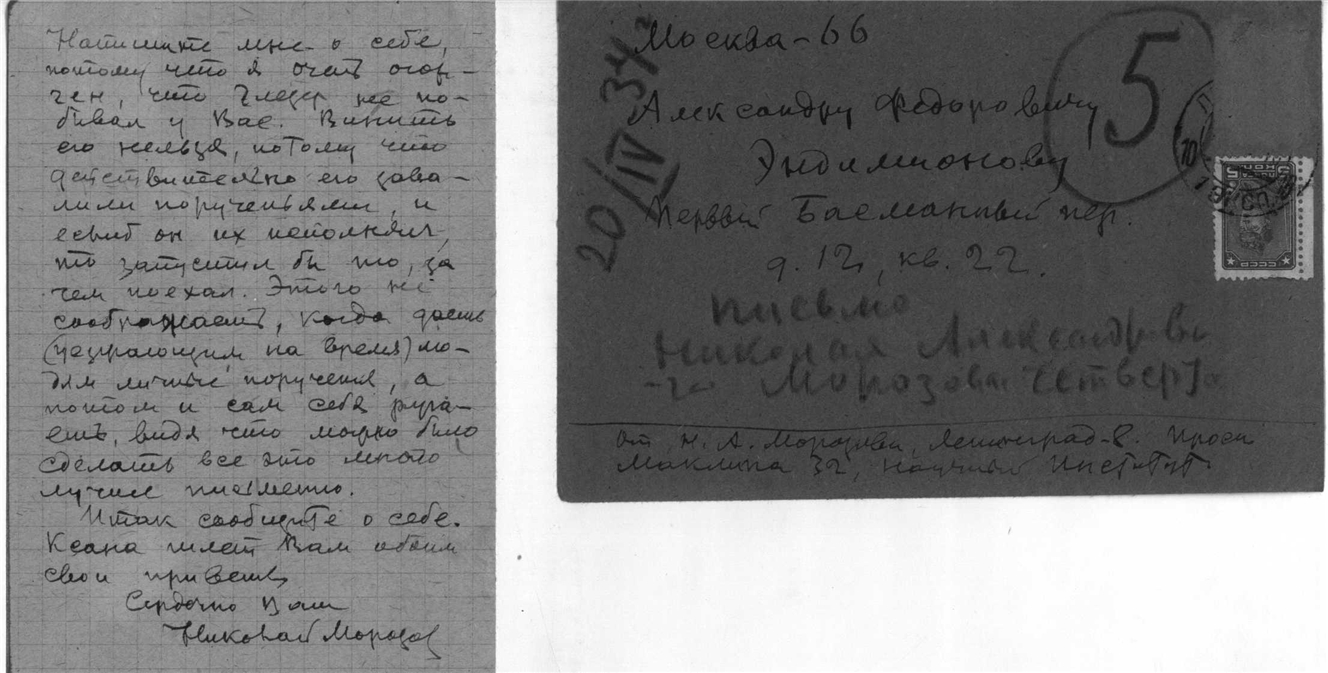 Напишите мне о себе,
потому что я очень огор-
чен, что Глезер не по-
бывал у Вас. Винить
его нельзя, потому что
действительно его зава-
лили порученьями, и
еслиб он их исполнял,
то запустил бы то, за
чем поехал. Этого не
соображаешь, когда даешь
(уезжающим на время) лю-
дям личные поручения, а
потом и сам себя руга-
ешь, видя что можно было
сделать все это много
лучше письменно.
Итак сообщите о себе.
Ксана шлет Вам обоим
свои приветы
Сердечно Ваш
Николай Морозов
20/IV 34
Москва-66
5
Александру Федоровичу
Эндимионову
Первый Басманный пер.
д. 12, кв. 22.
письмо
Николая Александрови
-ча Морозова четверто
от Н. А. Морозова, Ленинград-8. Просп
Маклина 32, Научный Институт
5 КОП
СССР